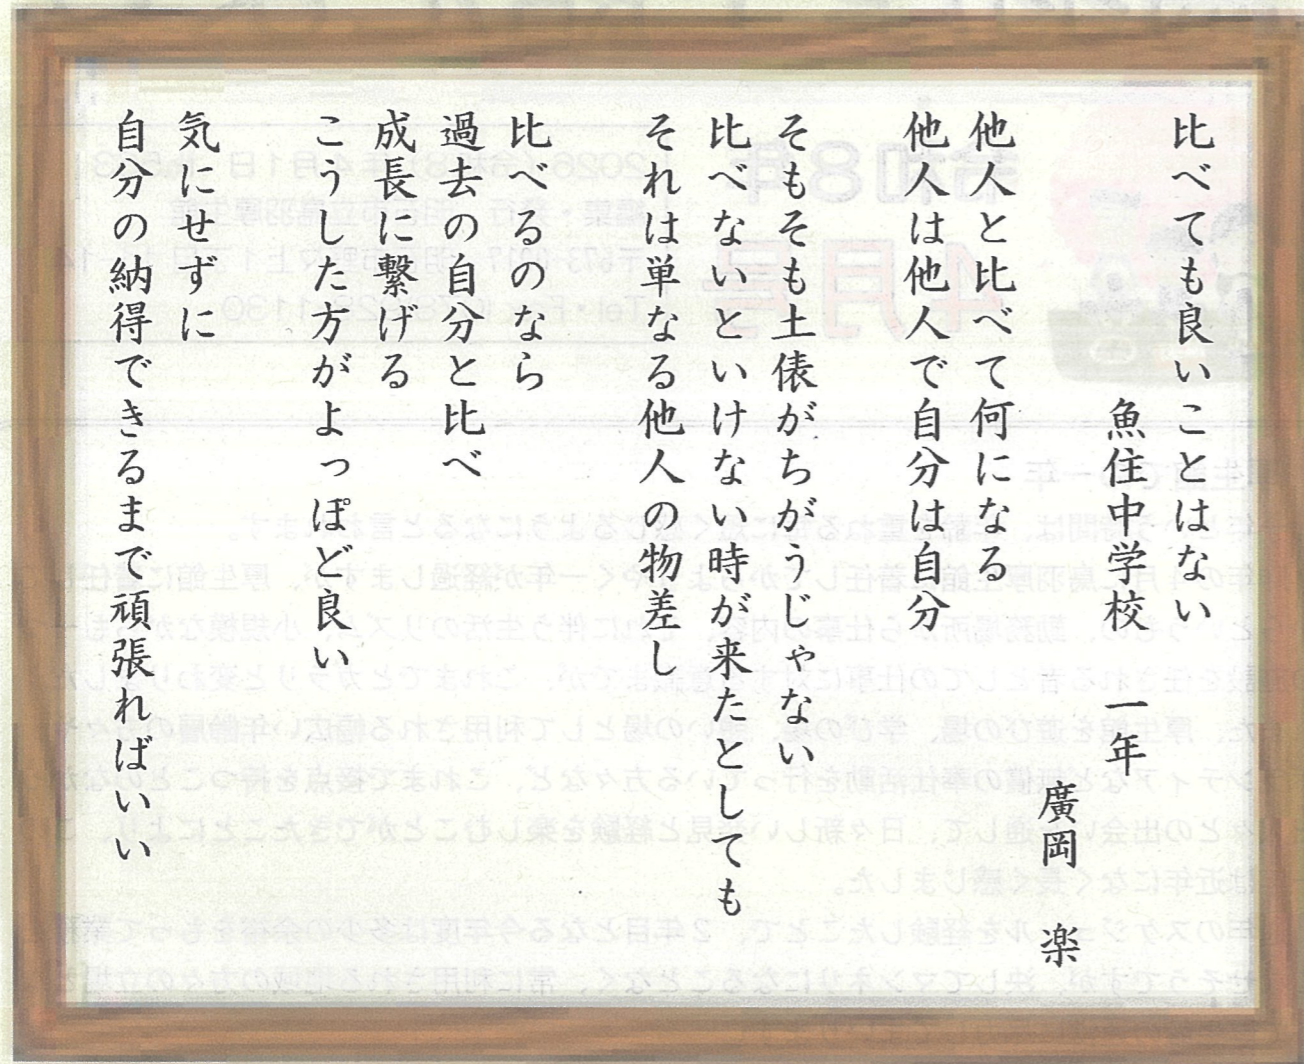 比べても良いことはない
魚住中学校　一年
廣岡　楽
他人と比べて何になる
他人は他人で自分は自分
そもそも土俵がちがうじゃない
比べないといけない時が来たとしても
それは単なる他人の物差し
比べるのなら
過去の自分と比べ
成長に繋げる
こうした方がよっぽど良い
気にせずに
自分の納得できるまで頑張ればいい